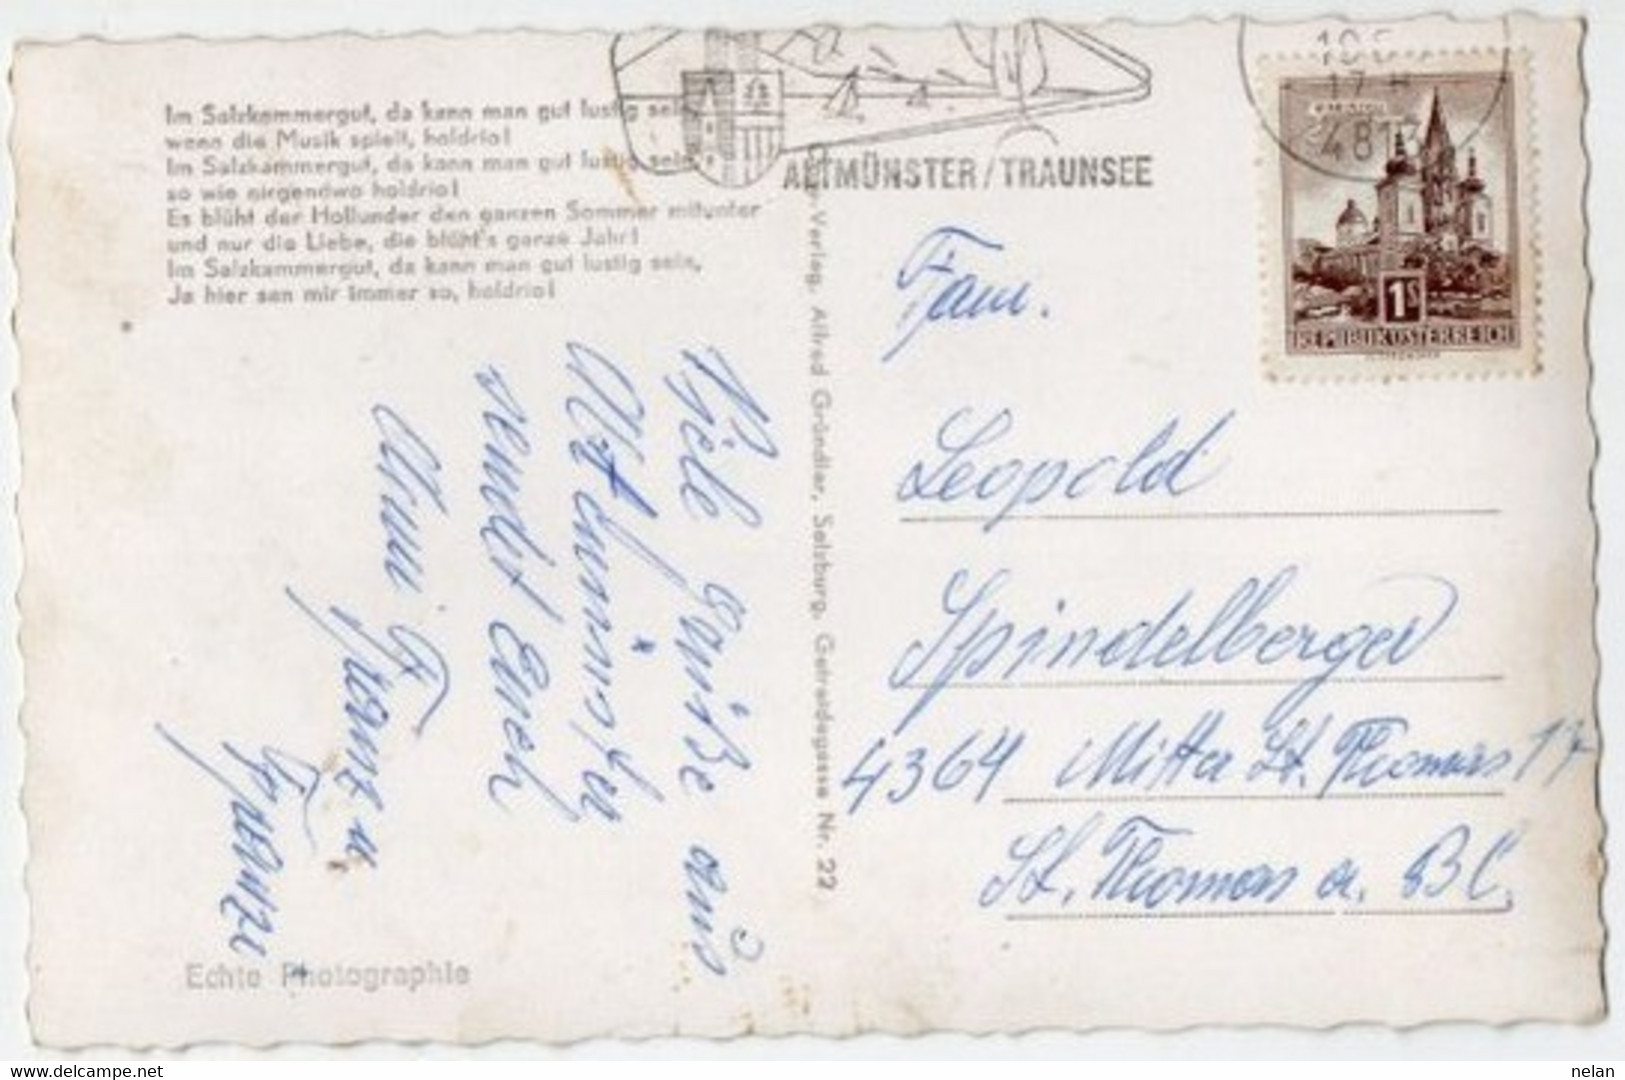 Im Salzkammergut, da kann man gut lustig sein,
wenn die Musik spielt, holdrio!
Im Salzkammergut, da kann man gut lustig sein,
so wie nirgendwo holdrio!
Es blüht der Hollunder den ganzen Sommer mitunter
und nur die Liebe, die blüht's ganze Jahr!
Im Salzkammergut, da kann man gut lustig sein,
Ja hier san mir immer so, holdrio!
ALTMÜNSTER/TRAUNSEE
17
481
MARIAZELL
1S
REPUBLIK ÖSTERREICH
Verlag. Alfred Gründler, Salzburg, Getreidegasse Nr. 22
Viele Grüße aus
Altmünster
sendet Euch
Franz u.
Echte Photographie
Fam.
Leopold
Spindelberger
4364 Mitter St. Thomas 17
St. Thomas a. Bl.
www.delcampe.net
nelan